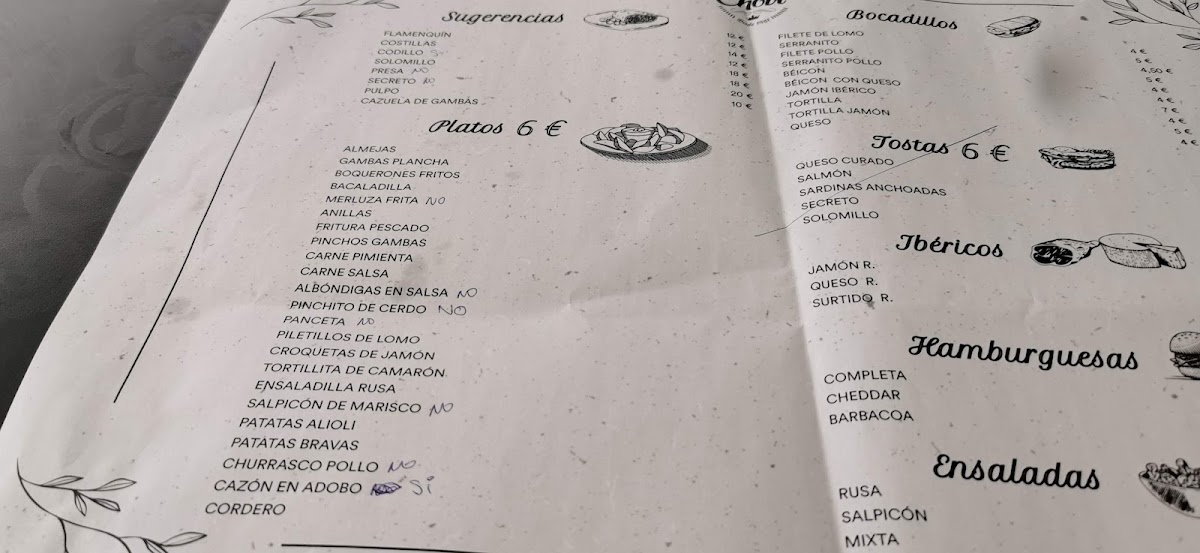 Sugerencias
FLAMENQUÍN 12 €
COSTILLAS 12 €
CODILLO 14 €
SOLOMILLO 12 €
PRESA NO 18 €
SECRETO NO 18 €
PULPO 20 €
CAZUELA DE GAMBAS 10 €
Platos 6 €
ALMEJAS
GAMBAS PLANCHA
BOQUERONES FRITOS
BACALADILLA
MERLUZA FRITA NO
ANILLAS
FRITURA PESCADO
PINCHOS GAMBAS
CARNE PIMIENTA
CARNE SALSA
ALBÓNDIGAS EN SALSA NO
PINCHITO DE CERDO NO
PANCETA NO
PILETILLOS DE LOMO
CROQUETAS DE JAMÓN
TORTILLITA DE CAMARÓN
ENSALADILLA RUSA
SALPICÓN DE MARISCO NO
PATATAS ALIOLI
PATATAS BRAVAS
CHURRASCO POLLO NO
CAZÓN EN ADOBO Si
CORDERO
Bocadillos
FILETE DE LOMO 4 €
SERRANITO 5 €
FILETE POLLO 4,50 €
SERRANITO POLLO 5 €
BÉICON 4 €
BÉICON CON QUESO 4 €
JAMÓN IBÉRICO 7 €
TORTILLA 4 €
TORTILLA JAMÓN 5 €
QUESO 4 €
Tostas 6 €
QUESO CURADO
SALMÓN
SARDINAS ANCHOADAS
SECRETO
SOLOMILLO
Ibéricos
JAMÓN R.
QUESO R.
SURTIDO R.
Hamburguesas
COMPLETA
CHEDDAR
BARBACOA
Ensaladas
RUSA
SALPICÓN
MIXTA